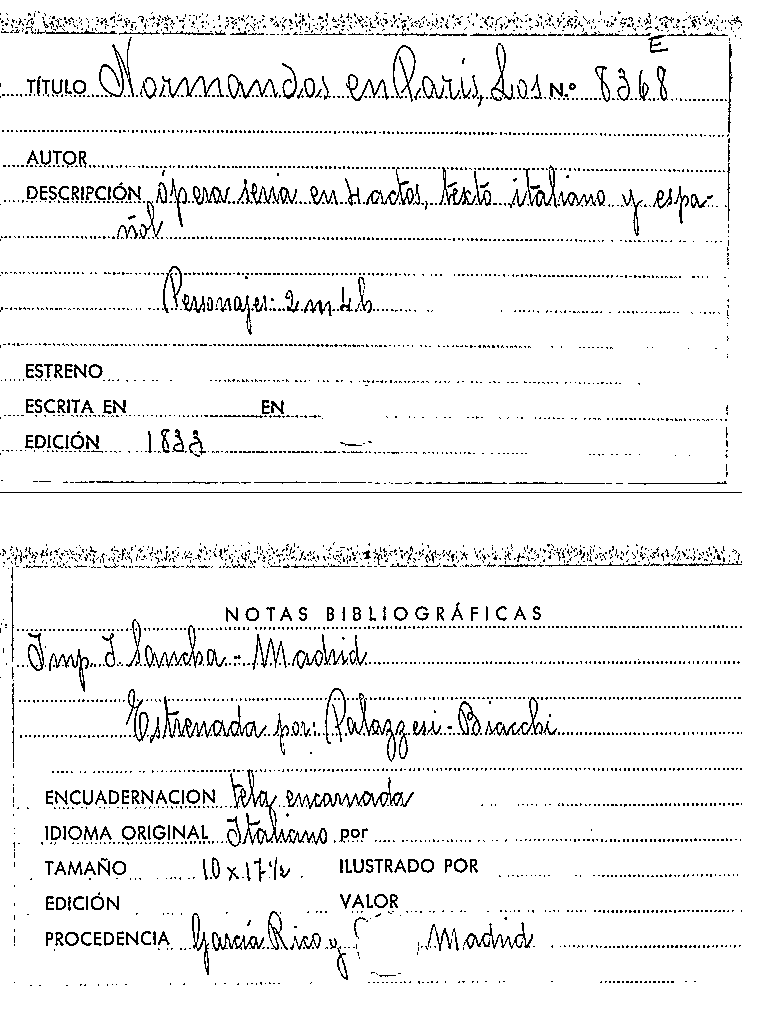 E
TÍTULO Normandos en Paris, Los N.º 8368
AUTOR
DESCRIPCIÓN ópera seria en 4 actos, texto italiano y espa-
ñol
Personajes: 2 m 4 h
ESTRENO
ESCRITA EN EN
EDICIÓN 1833
NOTAS BIBLIOGRÁFICAS
Imp. I Sancha - Madrid
Estrenada por: Palazzesi - Biacchi
ENCUADERNACION tela encarnada
IDIOMA ORIGINAL Italiano por
TAMAÑO 10 x 17 ½ ILUSTRADO POR
EDICIÓN VALOR
PROCEDENCIA García Rico y , Madrid